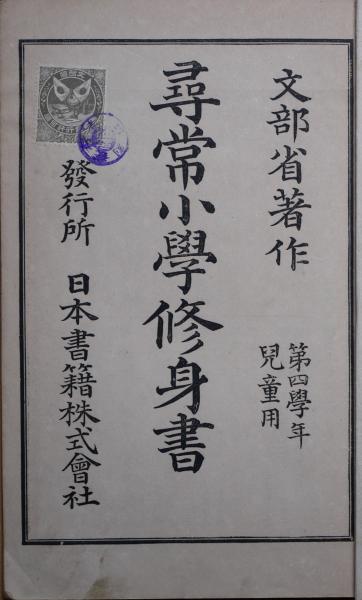 文部省著作
第四學年
兒童用
尋常小學修身書
發行所 日本書籍株式會社